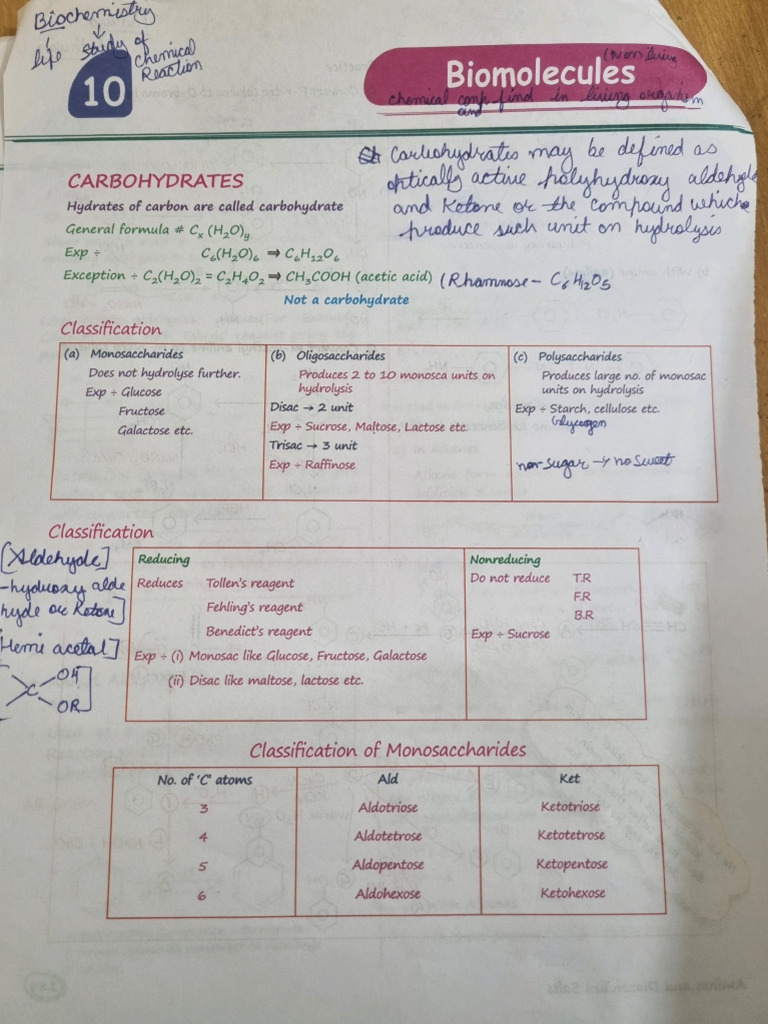 Biochemistry
life Study of chemical Reaction
10
Biomolecules
(Non living
chemical comp find in living organism
and
Carbohydrates may be defined as
optically active polyhydroxy aldehyde
and Ketone or the compound which
produce such unit on hydrolysis
CARBOHYDRATES
Hydrates of carbon are called carbohydrate
General formula # Cₓ (H₂O)ᵧ
Exp ÷ C₆(H₂O)₆ ⇒ C₆H₁₂O₆
Exception ÷ C₂(H₂O)₂ = C₂H₄O₂ ⇒ CH₃COOH (acetic acid) (Rhamnose - C₆H₁₂O₅
Not a carbohydrate
Classification
(a) Monosaccharides
Does not hydrolyse further.
Exp ÷ Glucose
Fructose
Galactose etc.
(b) Oligosaccharides
Produces 2 to 10 monosca units on
hydrolysis
Disac → 2 unit
Exp ÷ Sucrose, Maltose, Lactose etc.
Trisac → 3 unit
Exp ÷ Raffinose
(c) Polysaccharides
Produces large no. of monosac
units on hydrolysis
Exp ÷ Starch, cellulose etc.
Glycogen
non-sugar → no sweet
Classification
[Aldehyde]
-hydroxy alde
hyde or Ketone]
Hemi acetal]
C OH
OR]
Reducing
Reduces Tollen's reagent
Fehling's reagent
Benedict's reagent
Exp ÷ (i) Monosac like Glucose, Fructose, Galactose
(ii) Disac like maltose, lactose etc.
Nonreducing
Do not reduce T.R
F.R
B.R
Exp ÷ Sucrose
Classification of Monosaccharides
No. of 'C' atoms Ald Ket
3 Aldotriose Ketotriose
4 Aldotetrose Ketotetrose
5 Aldopentose Ketopentose
6 Aldohexose Ketohexose